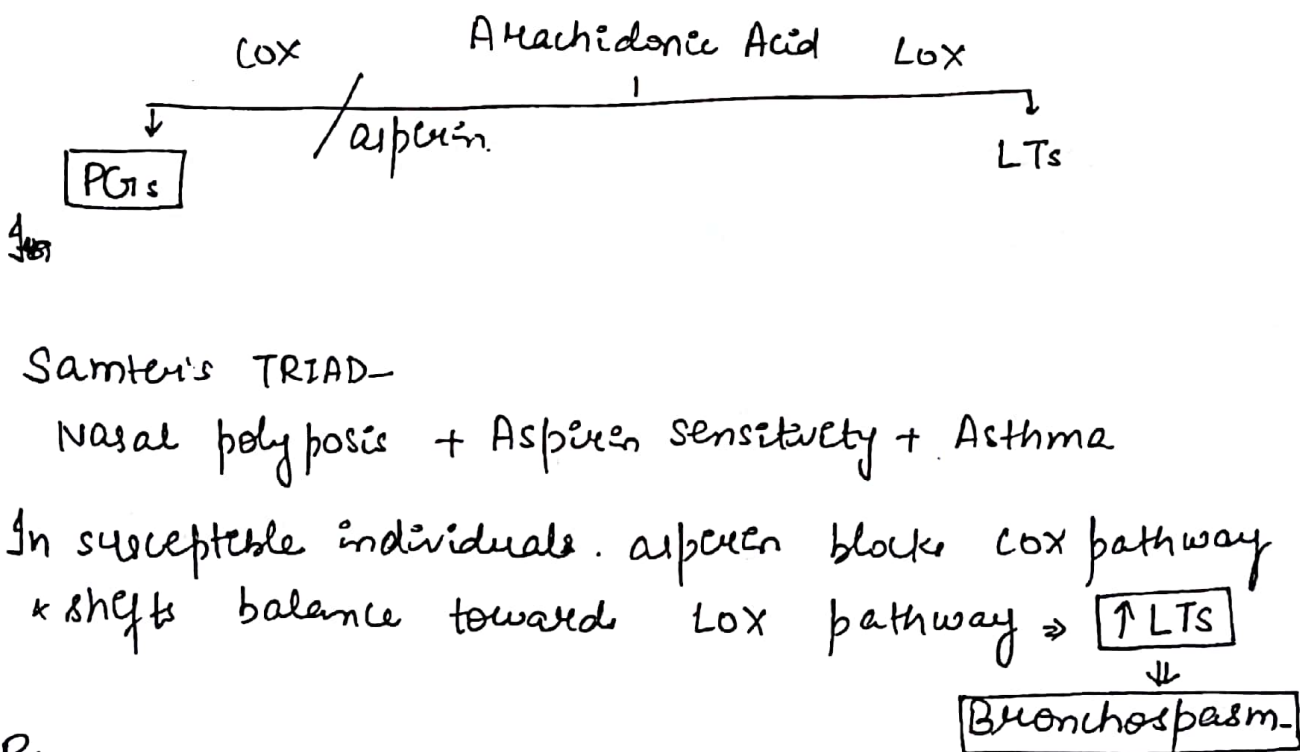 COX Arachidonic Acid LOX
aspirin.
PGs
LTs
Samter's TRIAD-
Nasal polyposis + Aspirin sensitivity + Asthma
In susceptible individuals. aspirin blocks COX pathway
& shifts balance towards LOX pathway ⇒ ↑ LTs
⇓
Bronchospasm-